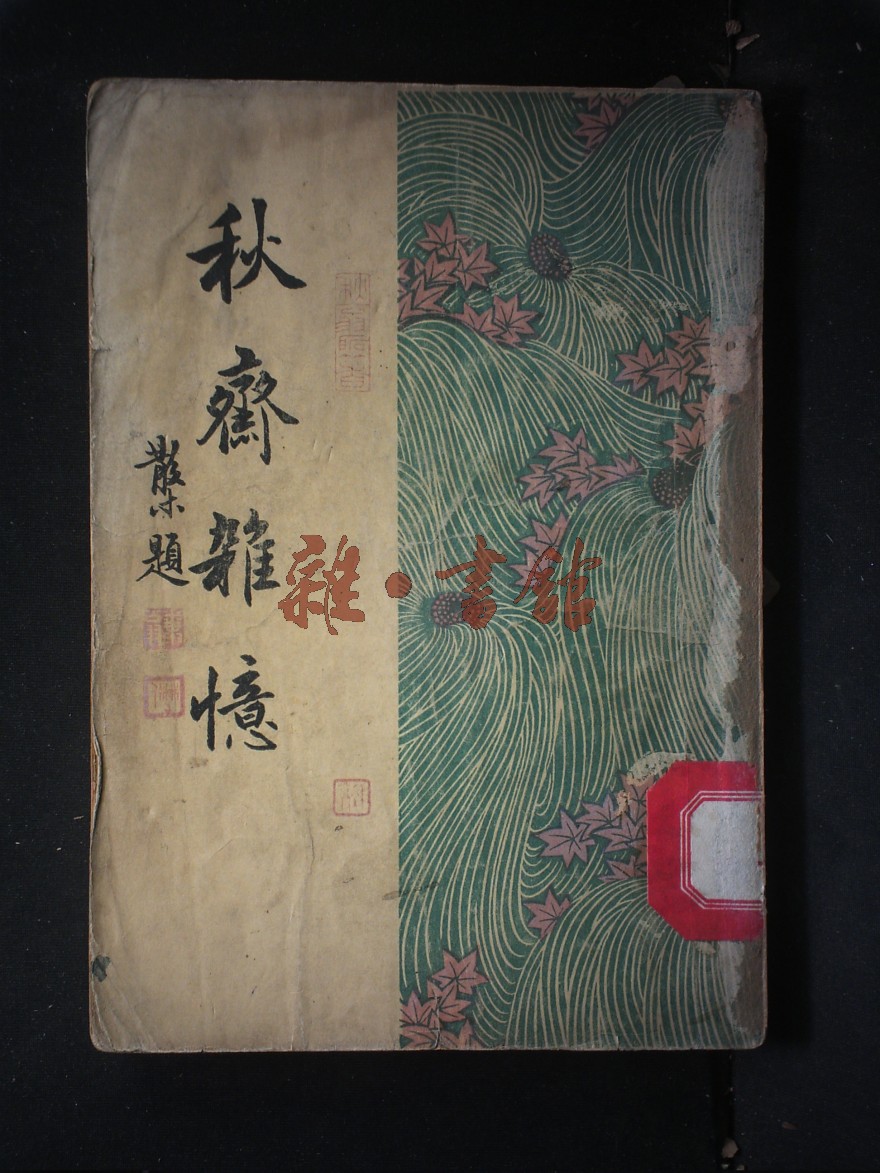 秋齋雜憶
散木題
雜·書館